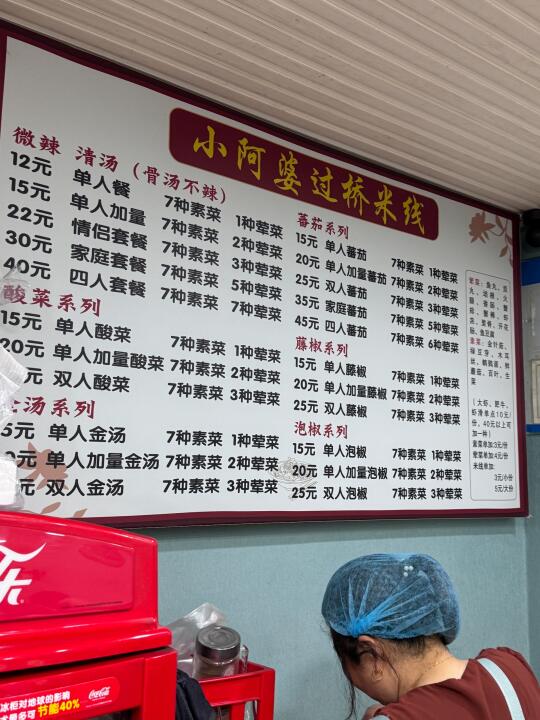 小阿婆过桥米线
微辣 清汤（骨汤不辣）
12元 单人餐 7种素菜 1种荤菜
15元 单人加量 7种素菜 2种荤菜
22元 情侣套餐 7种素菜 3种荤菜
30元 家庭套餐 7种素菜 5种荤菜
40元 四人套餐 7种素菜 7种荤菜
酸菜系列
15元 单人酸菜 7种素菜 1种荤菜
20元 单人加量酸菜 7种素菜 2种荤菜
元 双人酸菜 7种素菜 3种荤菜
汤系列
5元 单人金汤 7种素菜 1种荤菜
0元 单人加量金汤 7种素菜 2种荤菜
元 双人金汤 7种素菜 3种荤菜
蕃茄系列
15元 单人蕃茄 7种素菜 1种荤菜
20元 单人加量蕃茄 7种素菜 2种荤菜
25元 双人蕃茄 7种素菜 3种荤菜
35元 家庭蕃茄 7种素菜 5种荤菜
45元 四人蕃茄 7种素菜 6种荤菜
藤椒系列
15元 单人藤椒 7种素菜 1种荤菜
20元 单人加量藤椒 7种素菜 2种荤菜
25元 双人藤椒 7种素菜 3种荤菜
泡椒系列
15元 单人泡椒 7种素菜 1种荤菜
20元 单人加量泡椒 7种素菜 2种荤菜
25元 双人泡椒 7种素菜 3种荤菜
（大虾、肥牛、
虾滑单点10元/
份，40元以上可
加一种）
素菜单加:3元/份
荤菜单加:4元/份
米线单加:
3元/小份
5元/大份
乐
冰柜对地球的影响
节能40%
Coca-Cola